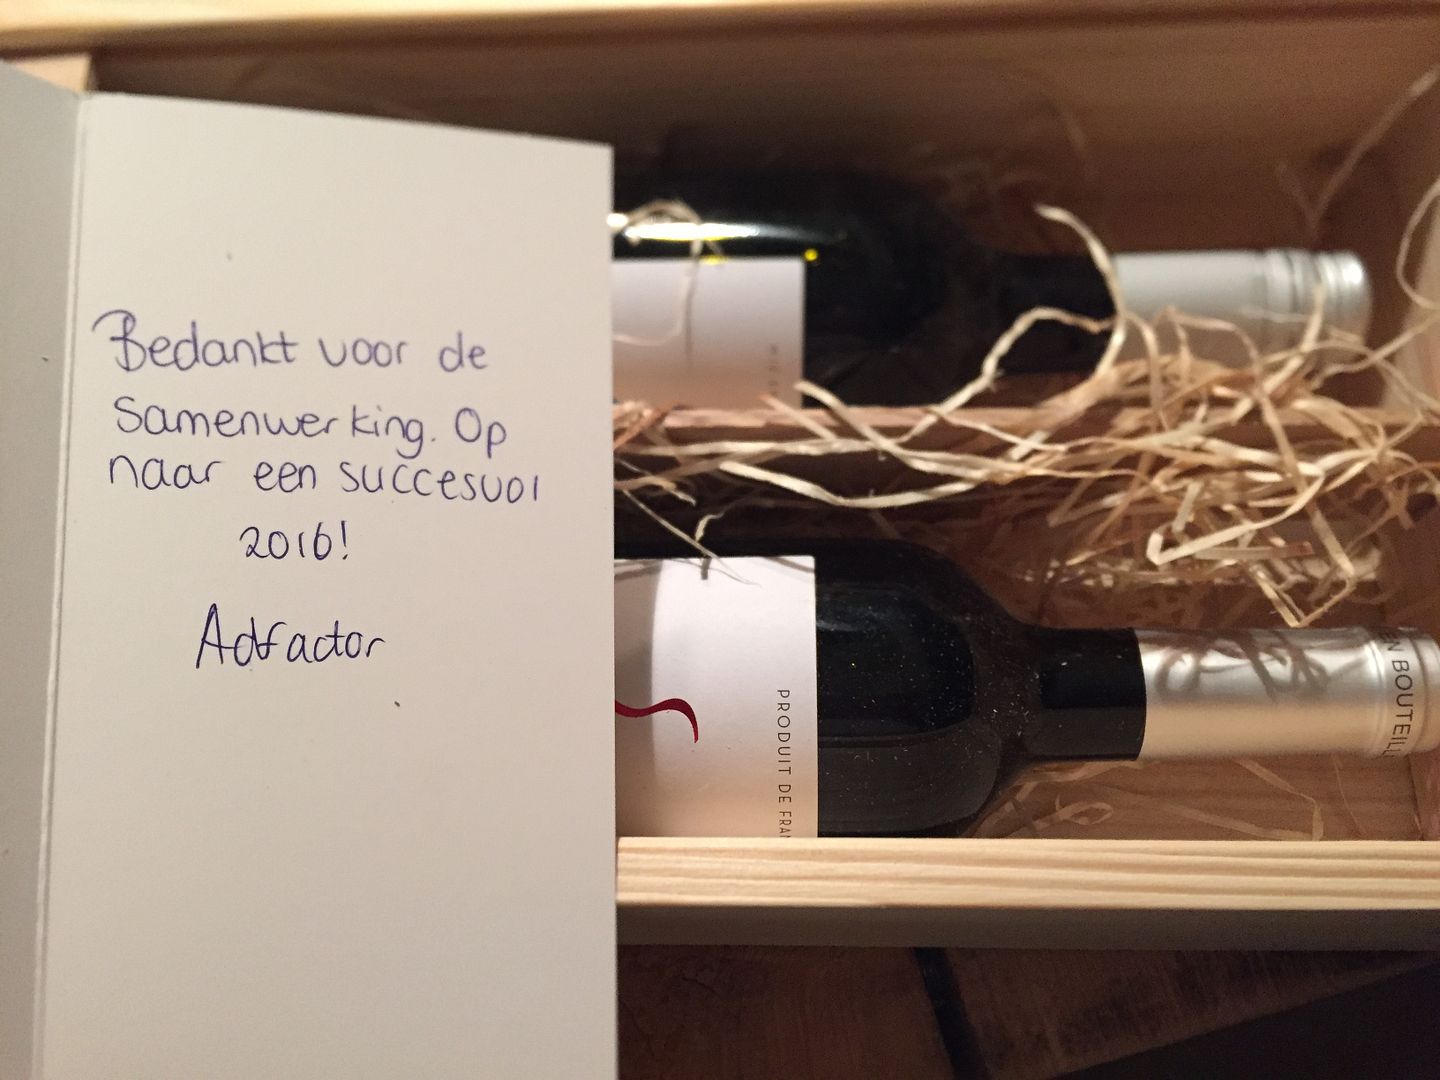 Bedankt voor de
samenwerking. Op
naar een succesvol
2016!
Adfactor
PRODUIT DE FRAN
EN BOUTEILL